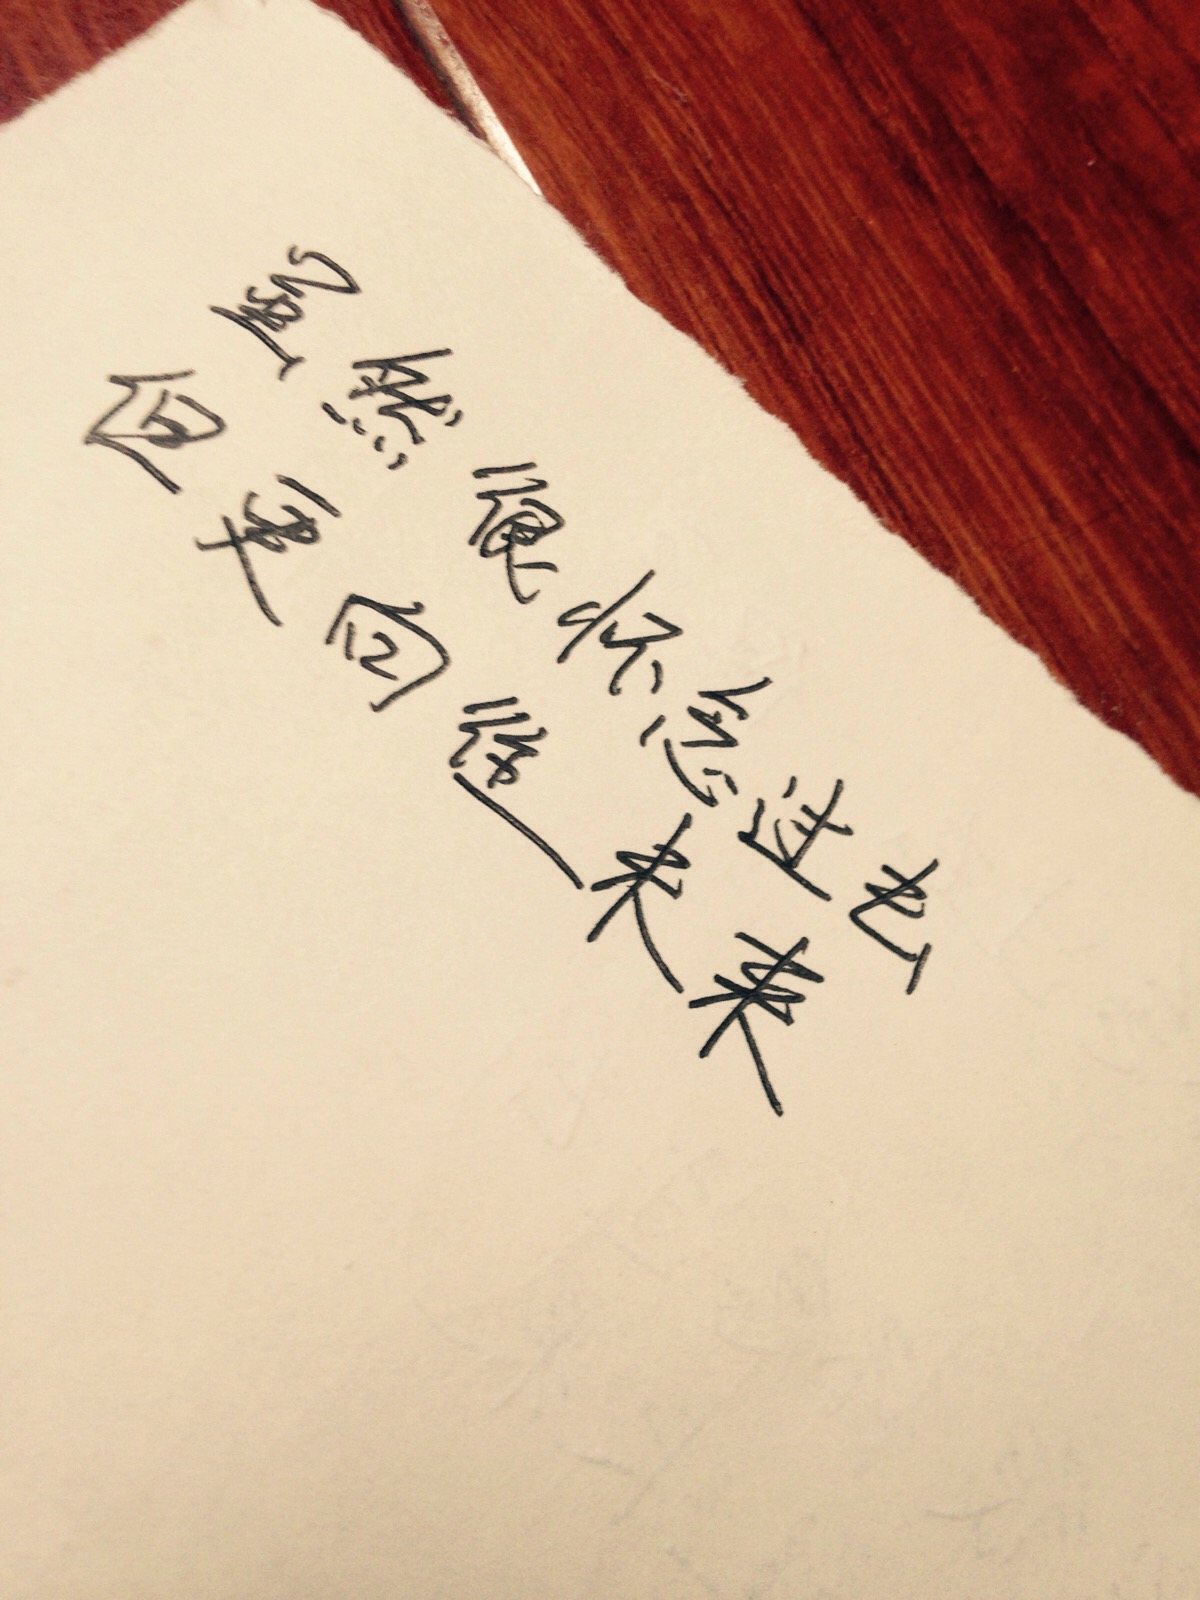 虽然很怀念过去
但要向往未来